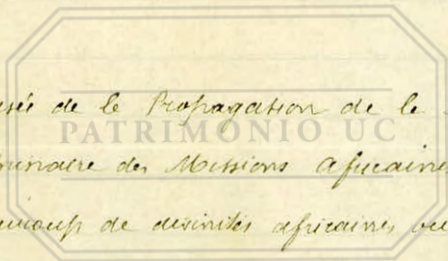 usée de la Propagation de la
PATRIMONIO UC
éminaire des Missions Africaines
eaucoup de divinités africaines ou